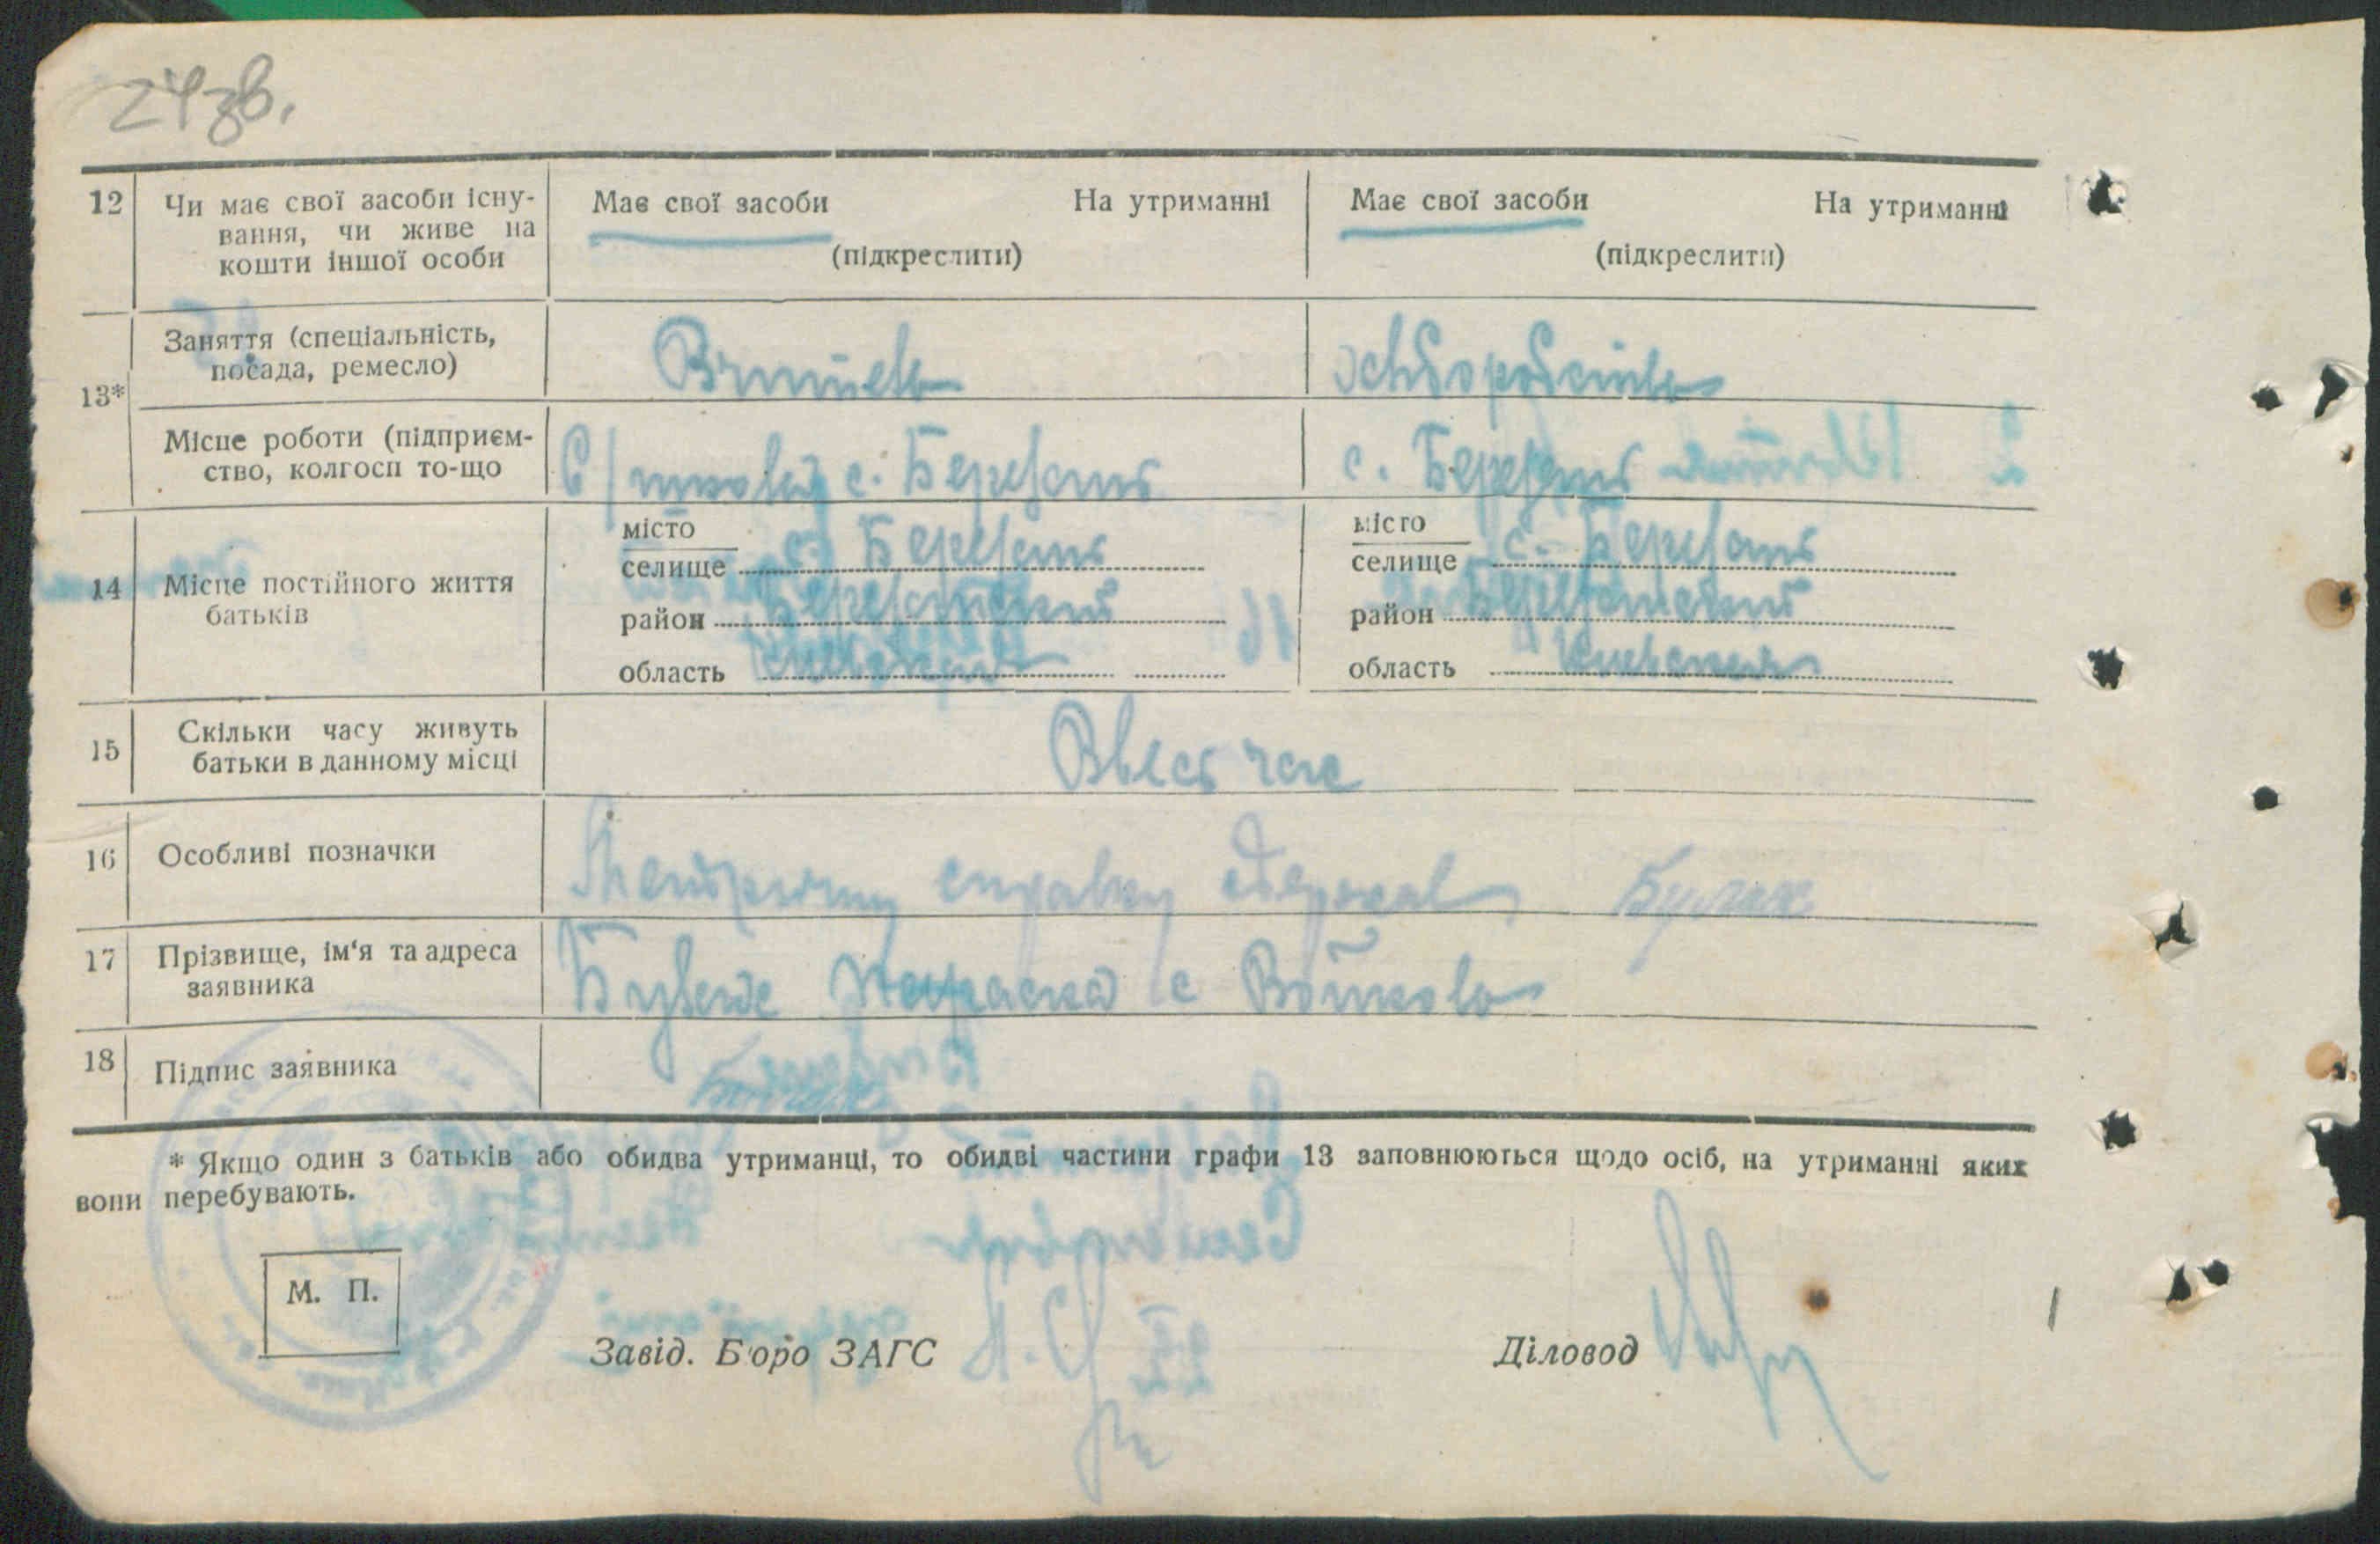 24зв.
12 Чи має свої засоби існу-
вання, чи живе на
кошти іншої особи
Має свої засоби На утриманні
(підкреслити)
Має свої засоби На утриманні
(підкреслити)
13*
Заняття (спеціальність,
посада, ремесло)
Вчитель
Місце роботи (підприєм-
ство, колгосп то-що
с. Березань
с. Березань
14 Місце постійного життя
батьків
місто
селище с. Березань
район Березанський
область Київська
місто
селище с. Березань
район Березанський
область Київська
15 Скільки часу живуть
батьки в данному місці
Ввесь час
16 Особливі позначки
справку одержав
17 Прізвище, ім'я та адреса
заявника
Параска с
18 Підпис заявника
* Якщо один з батьків або обидва утриманці, то обидві частини графи 13 заповнюються щодо осіб, на утриманні яких
вони перебувають.
М. П.
Завід. Бюро ЗАГС
Діловод